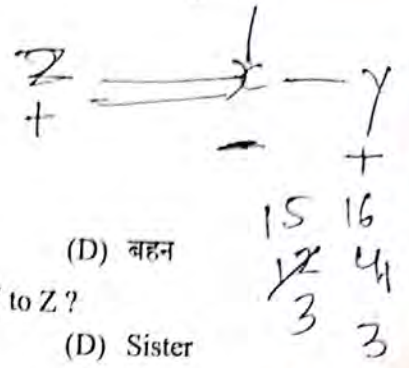 Z = x — y
+ - +
15 16
(D) बहन
12 4
to Z ?
3
(D) Sister
3